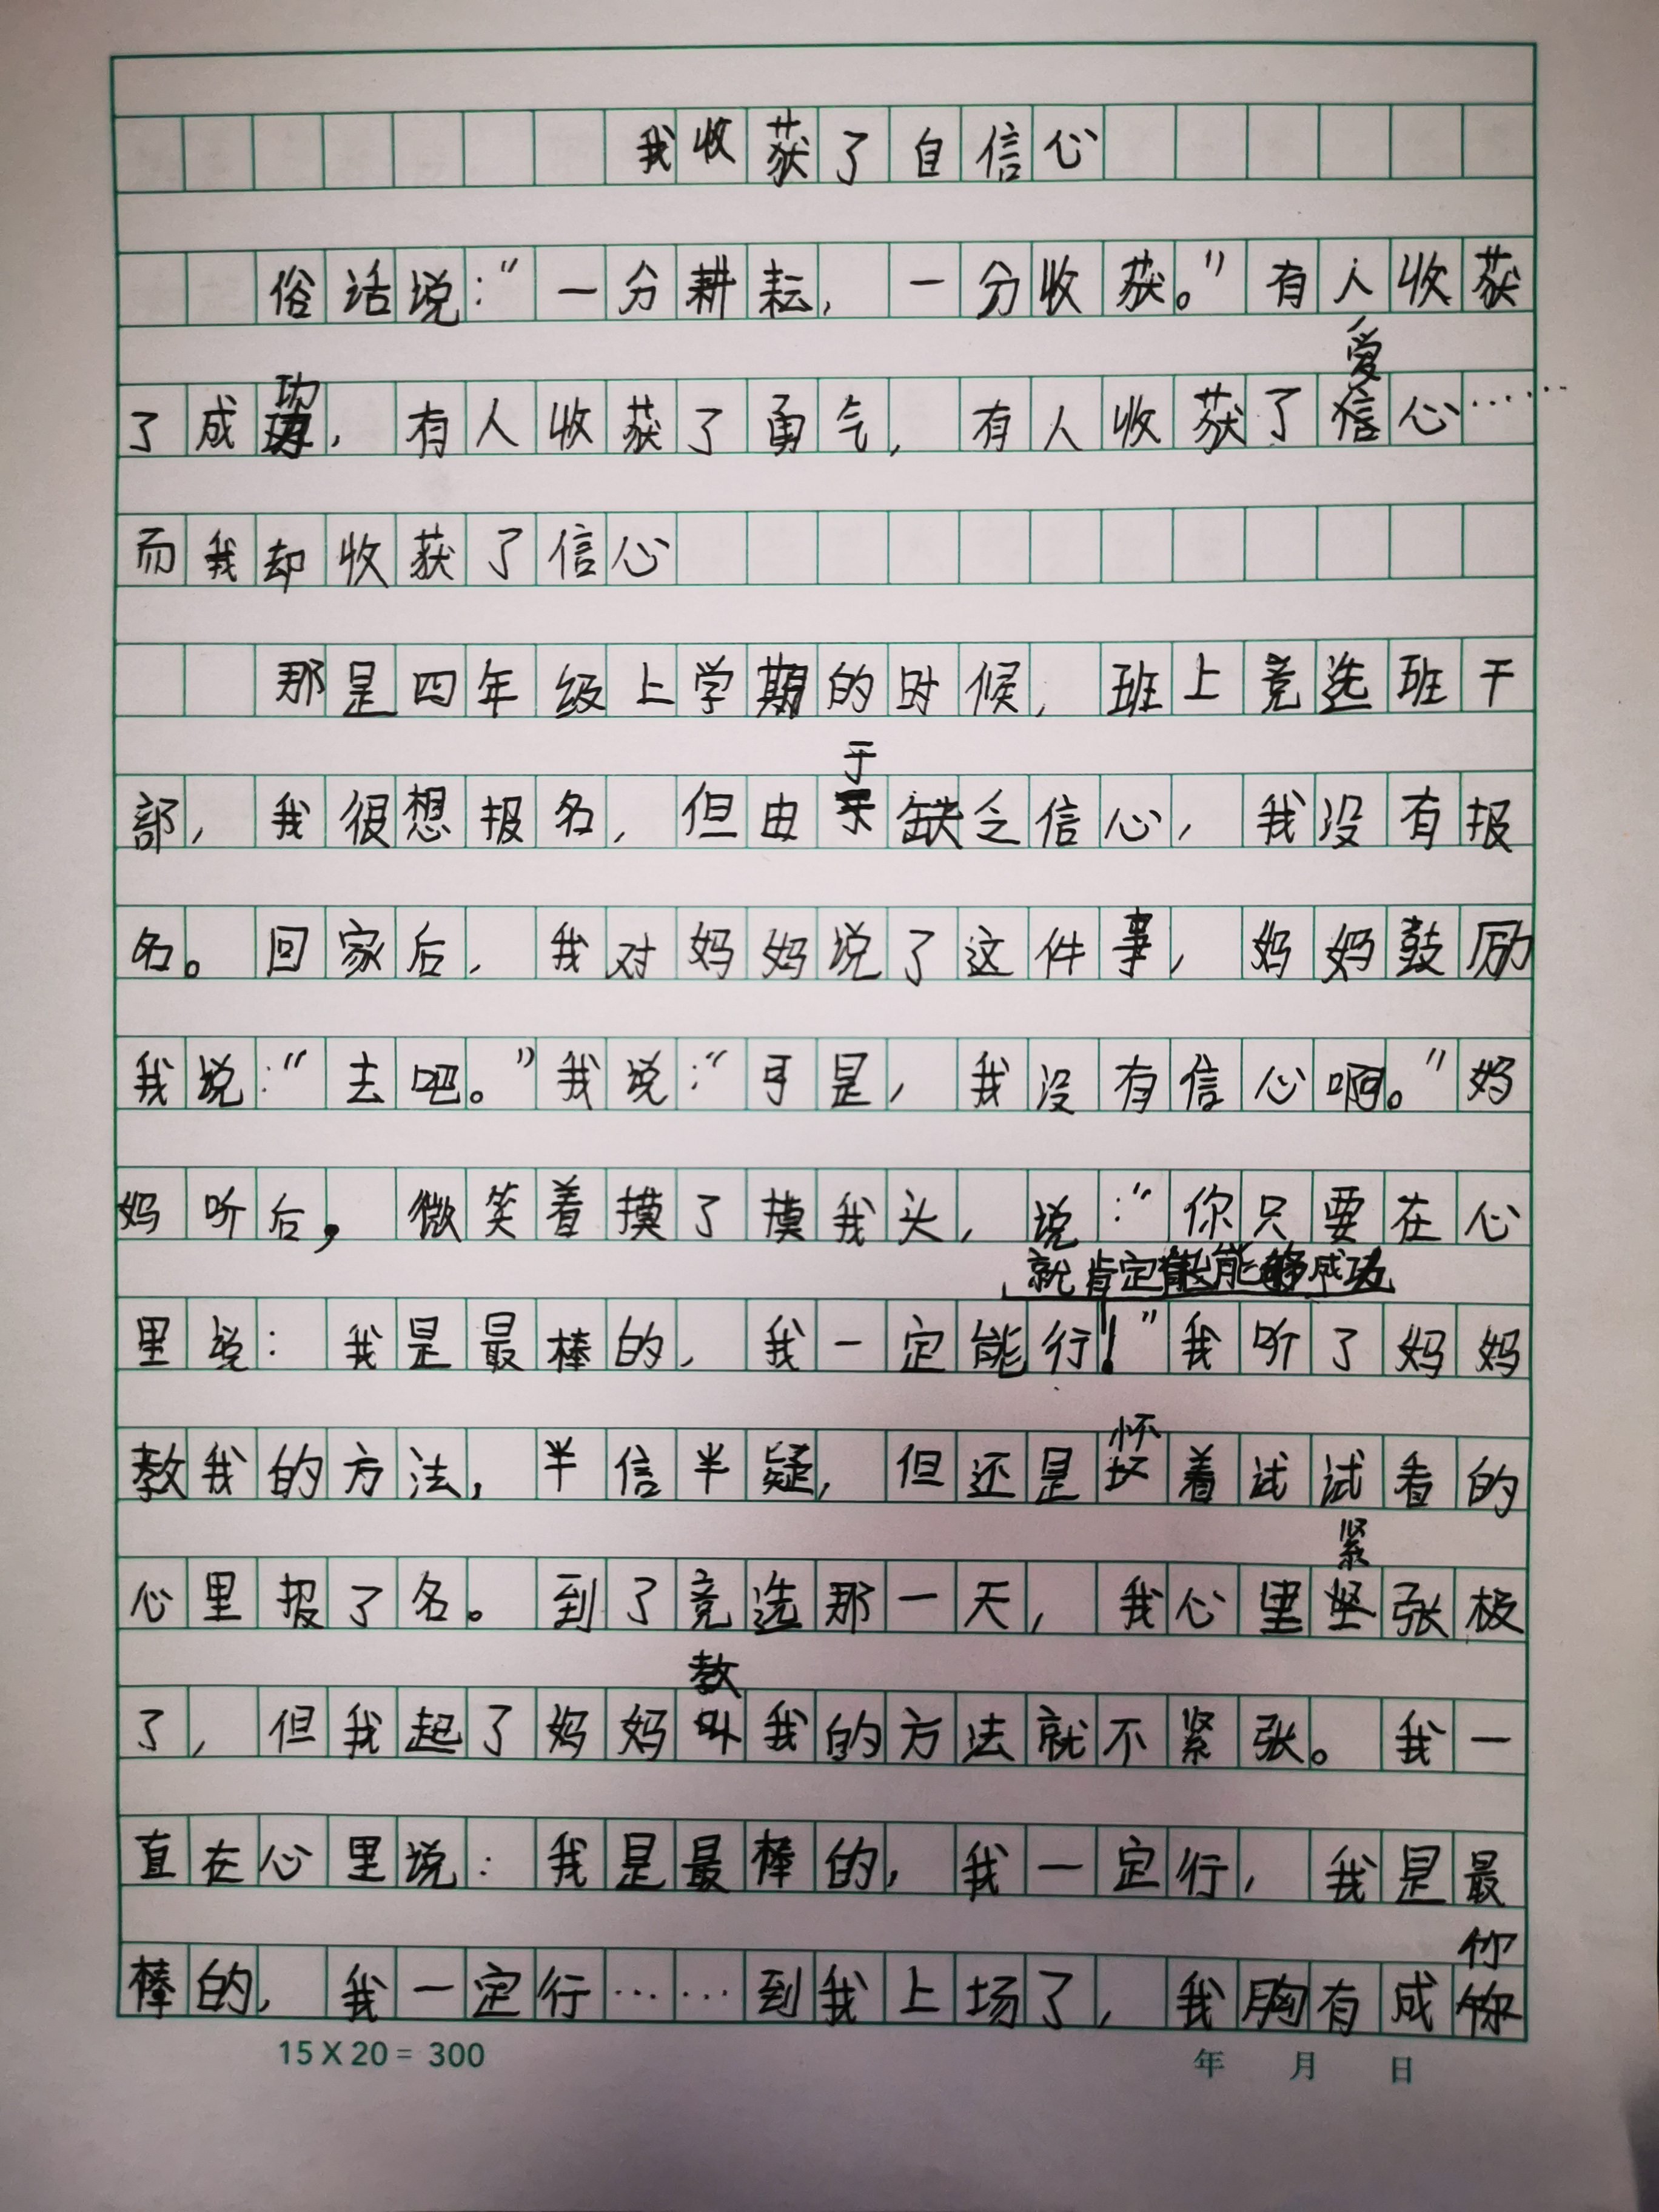 我收获了自信心
俗话说：“一分耕耘，一分收获。”有人收获
爱
功
了成，有人收获了勇气，有人收获了信心……
而我却收获了信心
那是四年级上学期的时候，班上竞选班干
于
部，我很想报名，但由缺乏信心，我没有报
名。回家后，我对妈妈说了这件事，妈妈鼓励
我说：“去吧。”我说：“可是，我没有信心啊。”妈
妈听后，微笑着摸了摸我头，说：“你只要在心
就肯定能够成功
里说：我是最棒的，我一定能行！”我听了妈妈
怀
教我的方法，半信半疑，但还是坏着试试看的
紧
心里报了名。到了竞选那一天，我心里坚张极
教
了，但我起了妈妈叫我的方法就不紧张。我一
直在心里说：我是最棒的，我一定行，我是最
你
棒的，我一定行……到我上场了，我胸有成
15X20=300
年 月 日